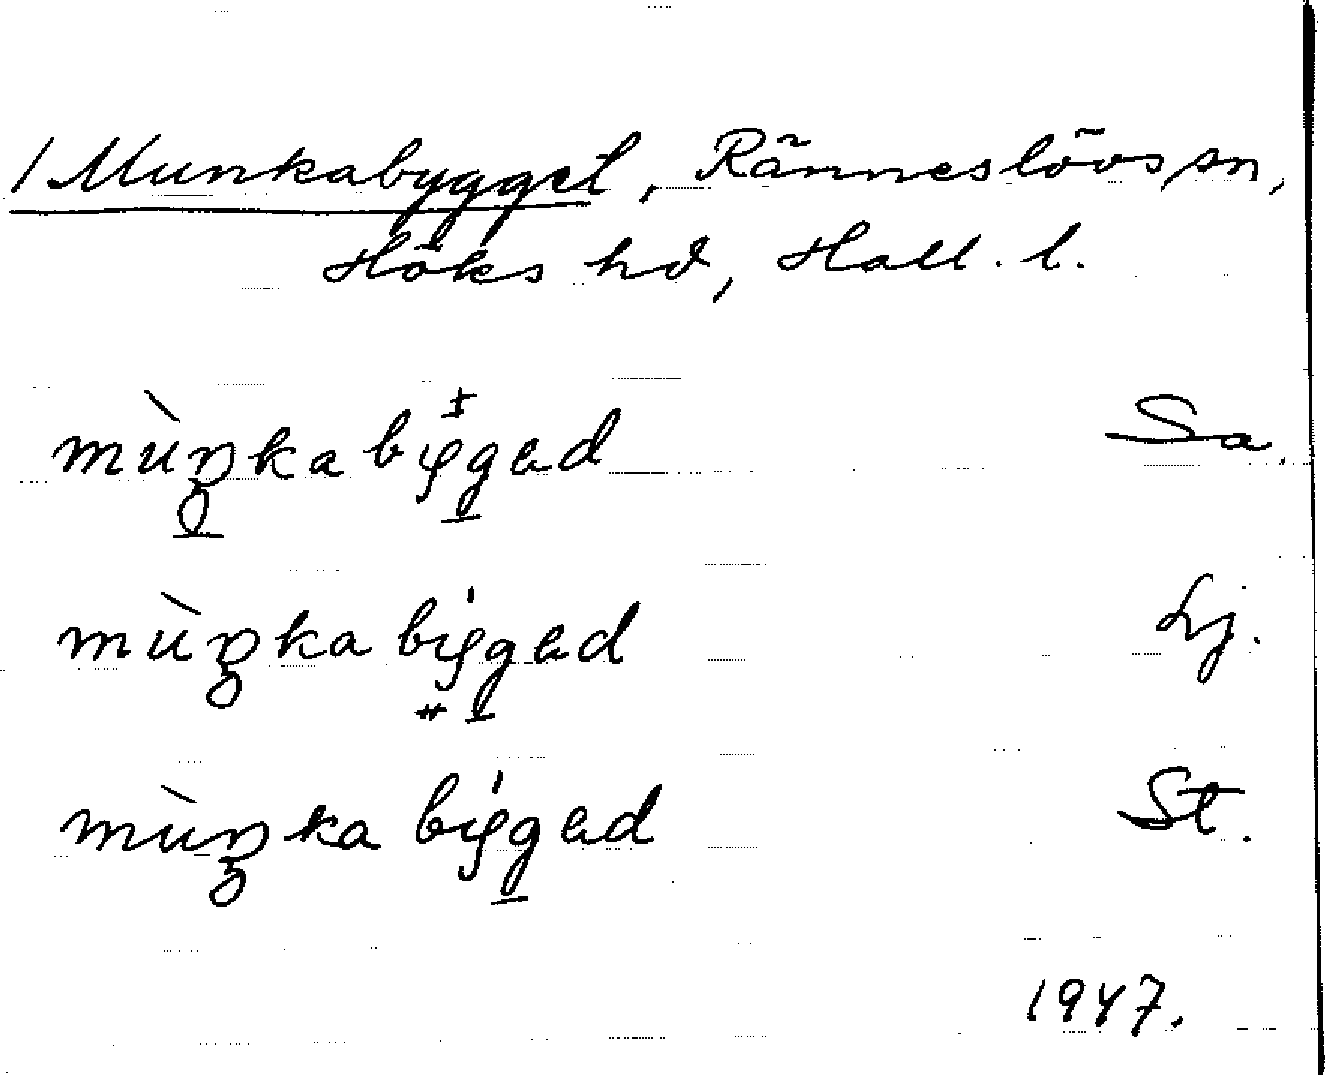 / Munkabygget, Ränneslövs sn,
Höks hd, Hall. l.
mùŋka bygad Sa.
mùŋka bygad Lj.
mùŋka bygad St.
1947.